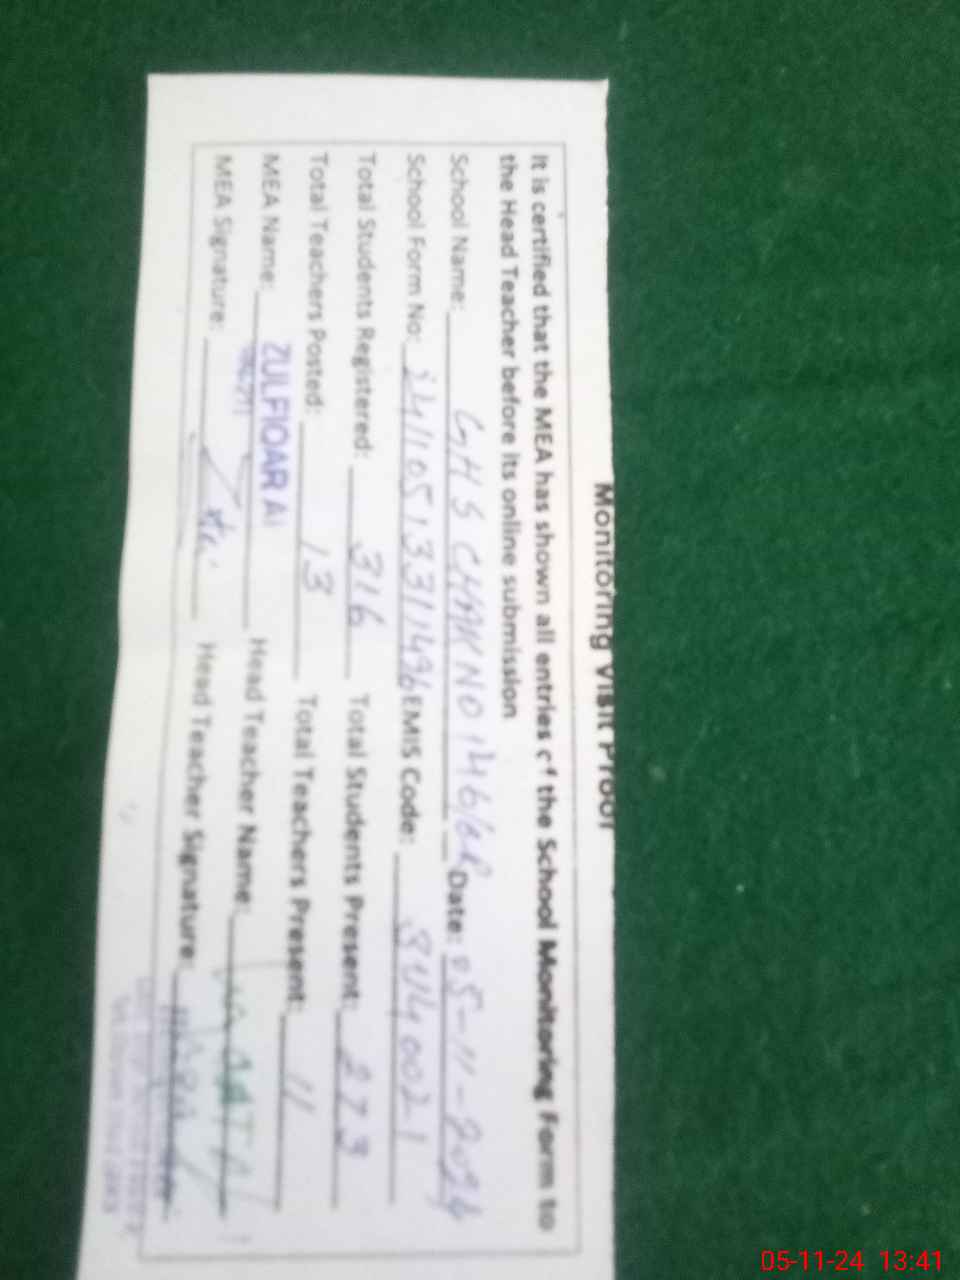 Monitoring Visit Proof
It is certified that the MEA has shown all entries of the School Monitoring Form to
the Head Teacher before its online submission
School Name: GHS CHAK NO 146/6R Date: 05-11-2024
School Form No: 2411051331496 EMIS Code:
Total Students Registered: 316 Total Students Present: 273
Total Teachers Posted: 13 Total Teachers Present: 11
MEA Name: ZULFIQAR Head Teacher Name:
MEA Signature: Head Teacher Signature:
05-11-24 13:41